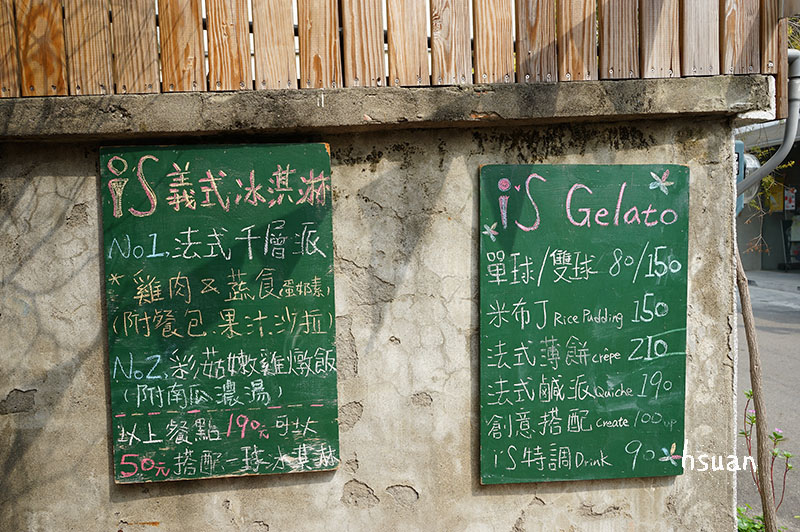 iS義式冰淇淋
No1.法式千層派
*雞肉&蔬食(蛋奶素)
(附餐包.果汁.沙拉)
No2.彩菇嫩雞燉飯
(附南瓜濃湯)
以上餐點190元可以
50元搭配一球冰淇淋
iS Gelato
單球/雙球 80/150
米布丁Rice Pudding 150
法式薄餅crêpe 210
法式鹹派Quiche 190
創意搭配create 100up
iS特調Drink 90
hsuan